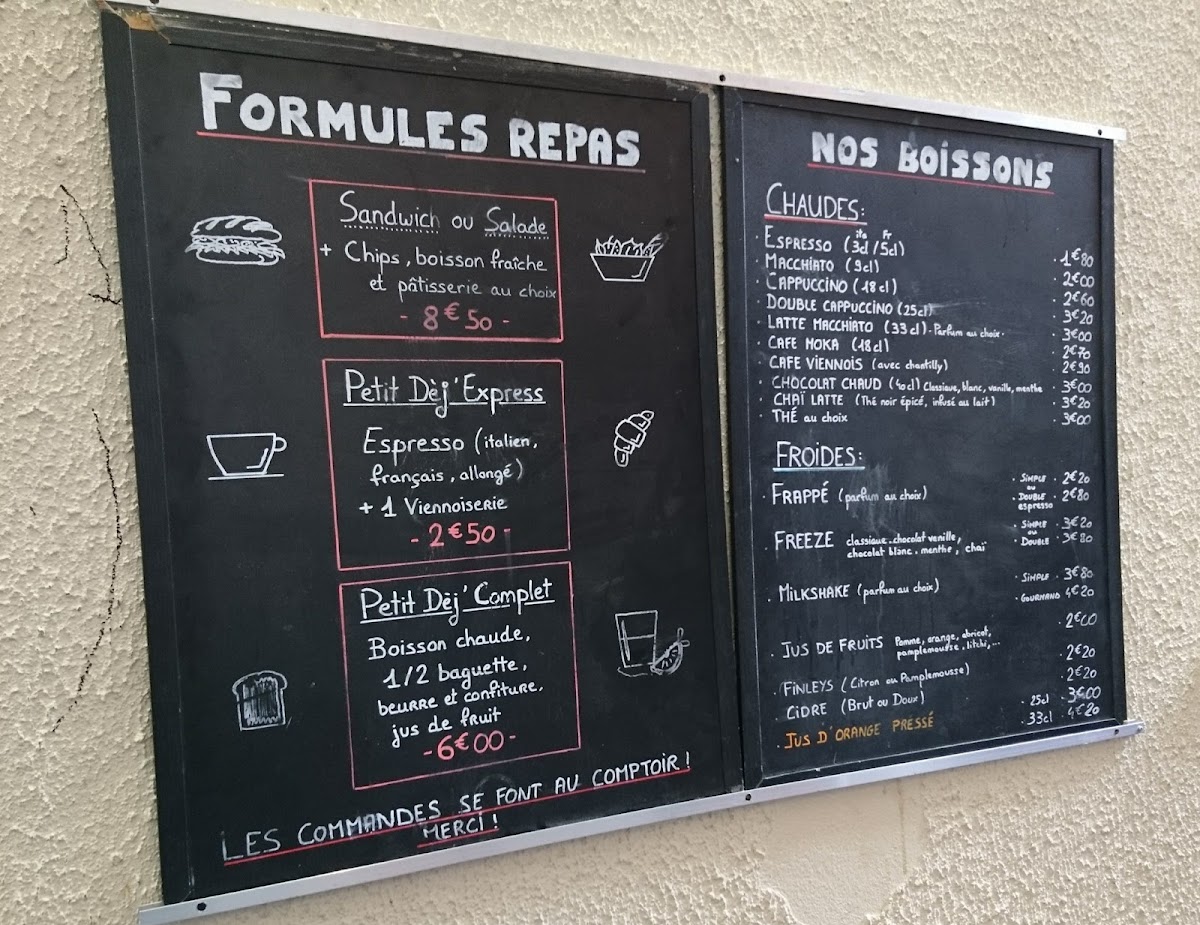 FORMULES REPAS
Sandwich ou Salade
+ Chips, boisson fraîche
et pâtisserie au choix
- 8€50 -
Petit Dèj'Express
Espresso (italien,
français, allongé)
+ 1 Viennoiserie
- 2€50 -
Petit Dèj'Complet
Boisson chaude,
1/2 baguette,
beurre et confiture,
jus de fruit
- 6€00 -
LES COMMANDES SE FONT AU COMPTOIR !
MERCI !
NOS BOISSONS
CHAUDES:
ita Fr
· ESPRESSO (3cl / 5cl) · 1€80
· MACCHIATO (9cl) · 2€00
· CAPPUCCINO (18cl) · 2€60
· DOUBLE CAPPUCCINO (25cl) · 3€20
· LATTE MACCHIATO (33cl) · Parfum au choix · · 3€00
· CAFE MOKA (18cl) 2€70
· CAFE VIENNOIS (avec chantilly) · 2€90
· CHOCOLAT CHAUD (40cl) Classique, blanc, vanille, menthe · 3€00
· CHAÏ LATTE (Thé noir épicé, infusé au lait) · 3€20
· THÉ au choix · 3€00
FROIDES:
· FRAPPÉ (parfum au choix) · SIMPLE · 2€20
ou
· DOUBLE · 2€80
espresso
· FREEZE classique. chocolat vanille, · SIMPLE · 3€20
ou
chocolat blanc. menthe, chaï · DOUBLE · 3€80
· MILKSHAKE (parfum au choix) · SIMPLE · 3€80
· GOURMAND 4€20
· JUS DE FRUITS Pomme, orange, abricot, · 2€00
pamplemousse, litchi,...
· FINLEYS (Citron ou Pamplemousse) · 2€20
· CIDRE (Brut ou Doux) · 2€20
· JUS D'ORANGE PRESSÉ · 25cl · 3€00
· 33cl · 4€20